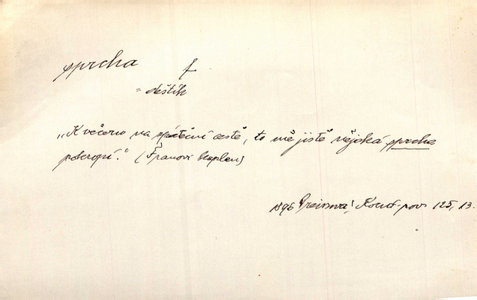 sprcha f
= deštík
„K večeru na zpáteční cestě, to mě jistě nějaká sprcha
pokropí." (
1896 Preissová, Korut. pov. 125, 13.